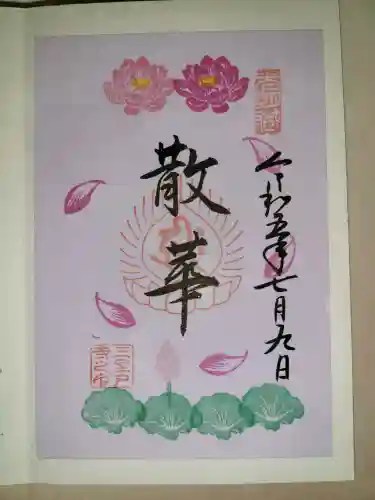 令和五年七月九日
散華